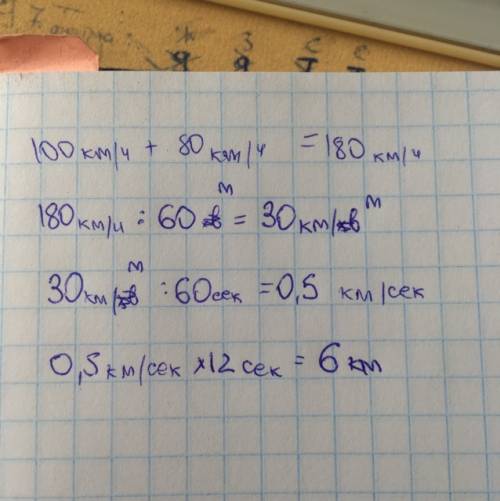 100 км/ч + 80 км/ч = 180 км/ч
180 км/ч : 60 м = 30 км/м
30 км/м : 60 сек = 0,5 км/сек
0,5 км/сек × 12 сек = 6 км